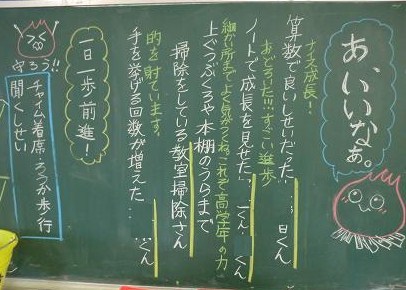 あ、いいなぁ。
ナイス成長！
算数で良いしせいだった…
日くん
おどろいた!!!すごい進歩
ノートで成長を見せた
くん
くん
細かい所までよく気がつくね。これぞ高学年の力
上ぐつぶくろや本棚のうらまで
掃除をしている教室掃除さん
的を射ています。
手を挙げる回数が増えた…
くん
一日一歩前進！
守ろう!!
チャイム着席・ろうか歩行
聞くしせい